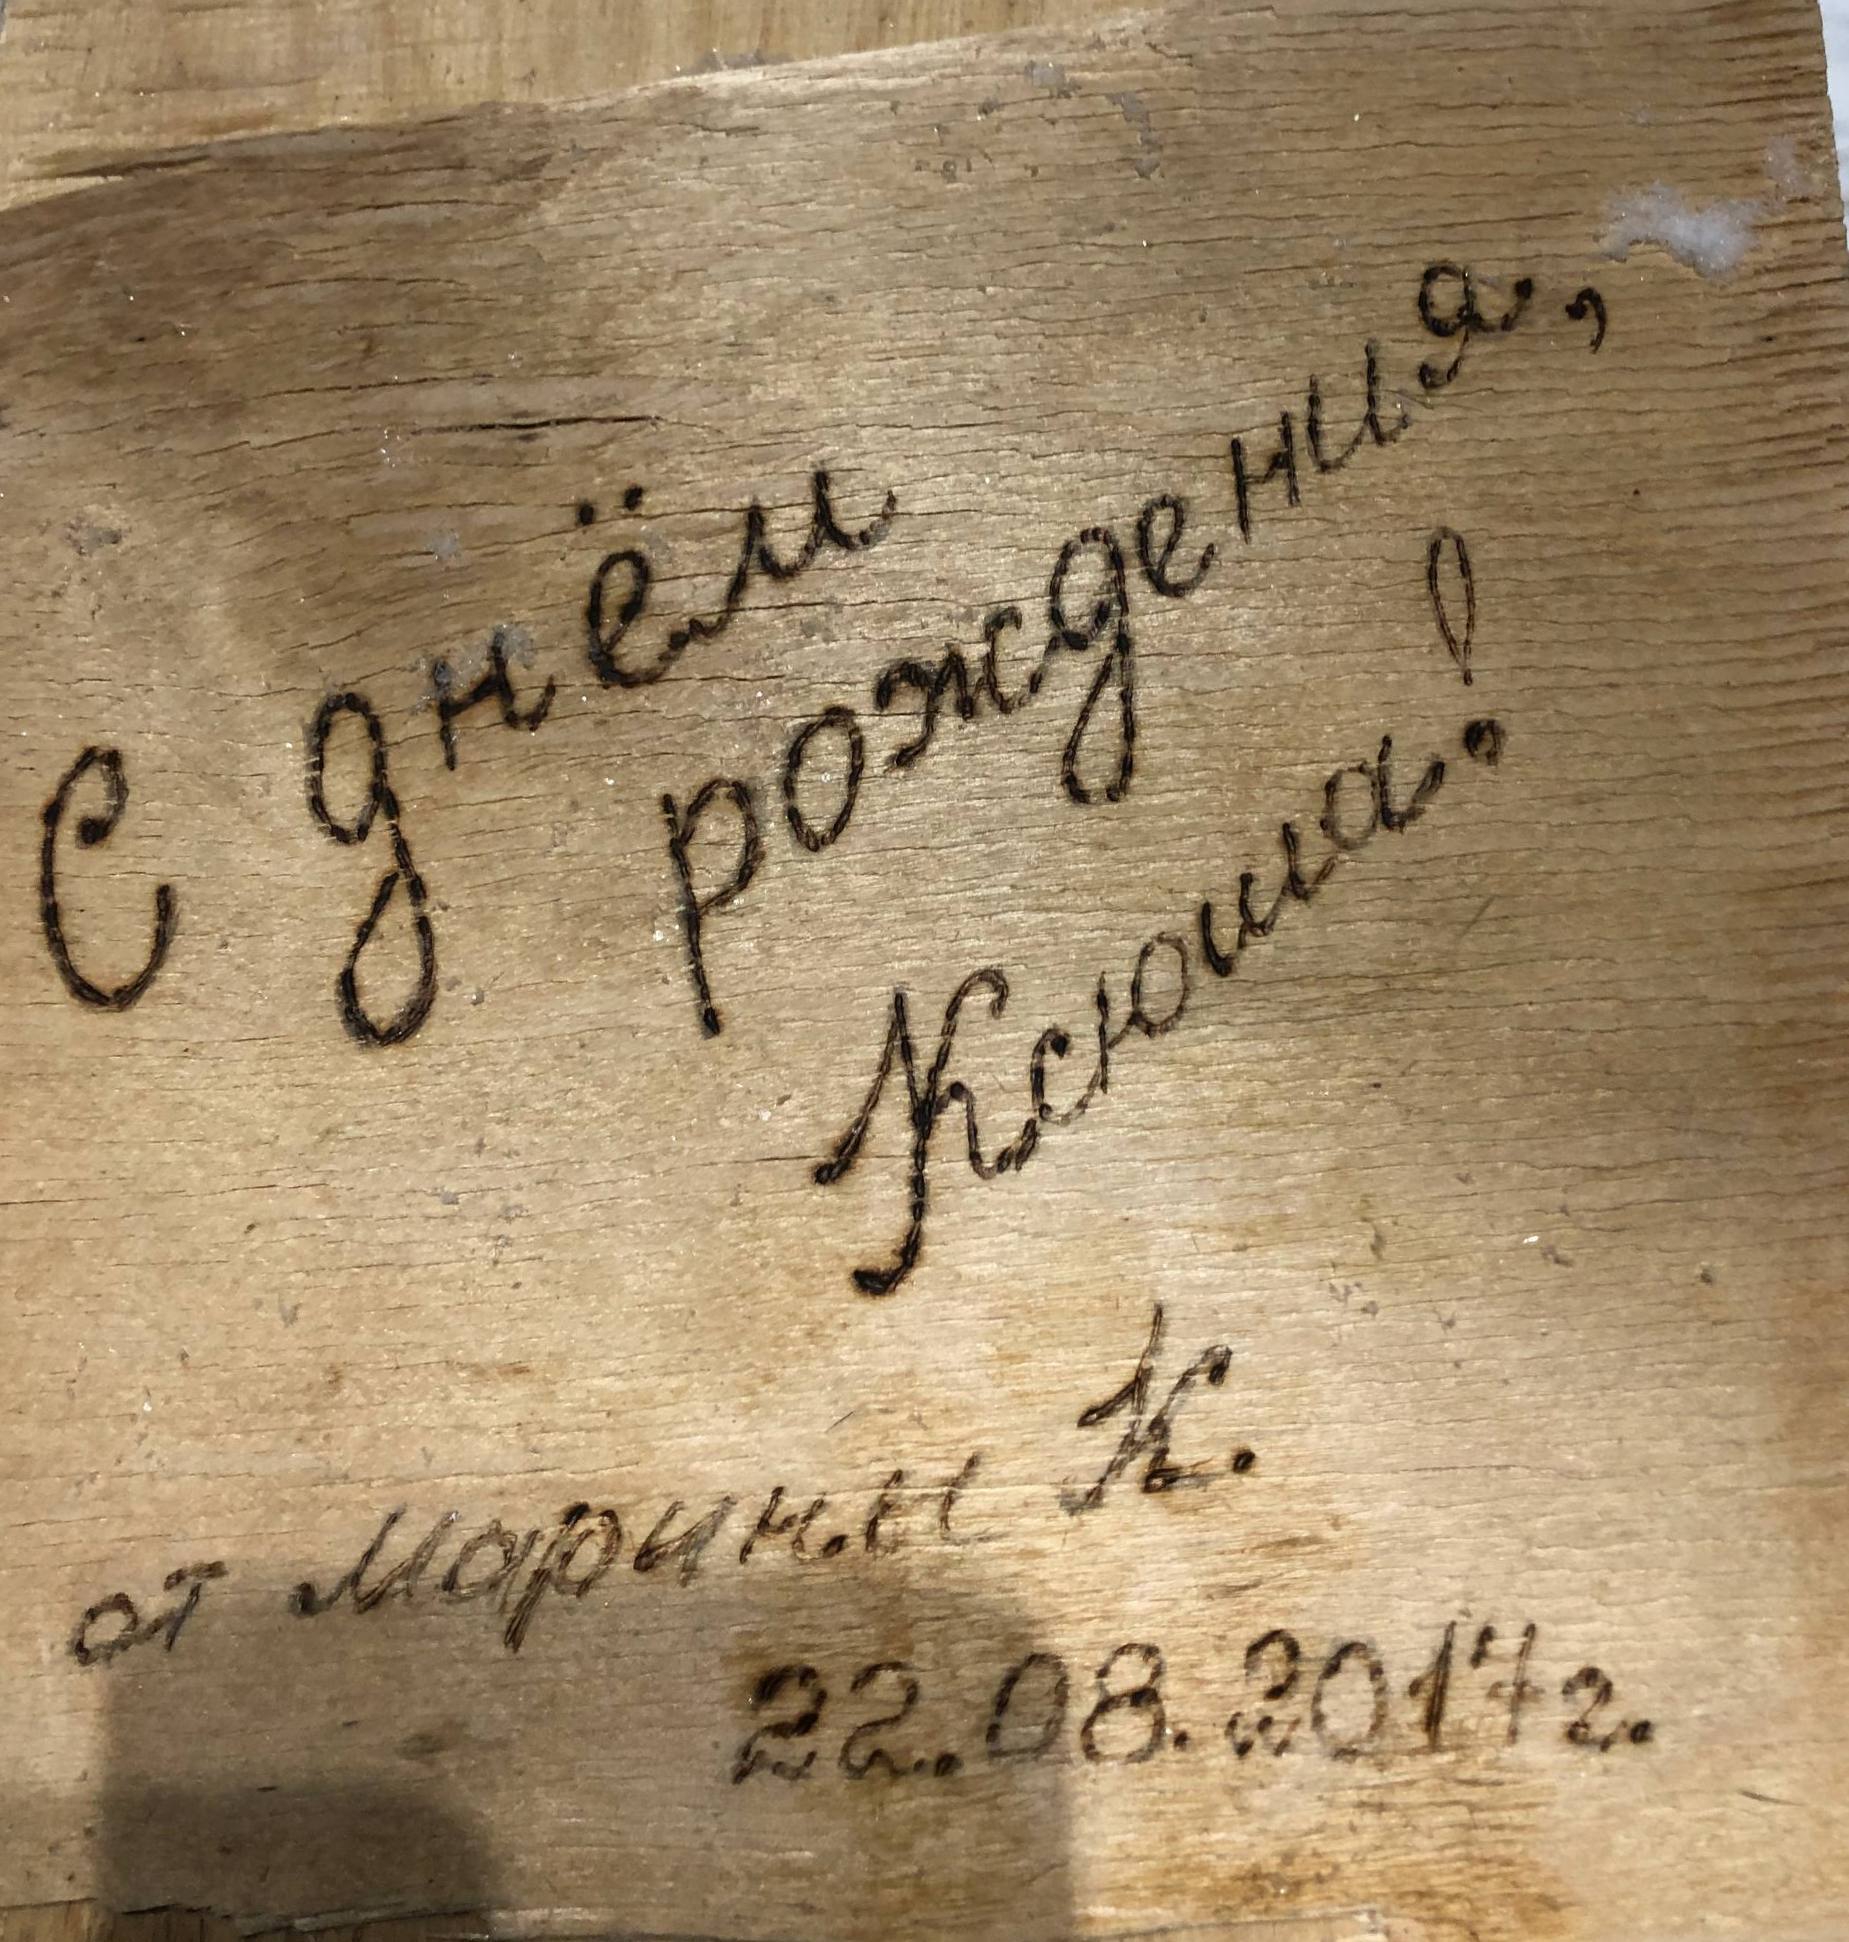 С днём
рождения,
Ксюша!
от Марины К.
22.08.2017г.